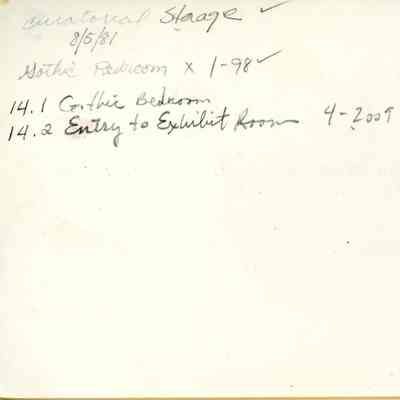 Curatorial Stoage ✓
8/5/81
Gothic Bedroom x 1-98 ✓
14.1 Gothic Bedroom
14.2 Entry to Exhibit Room 4-2009